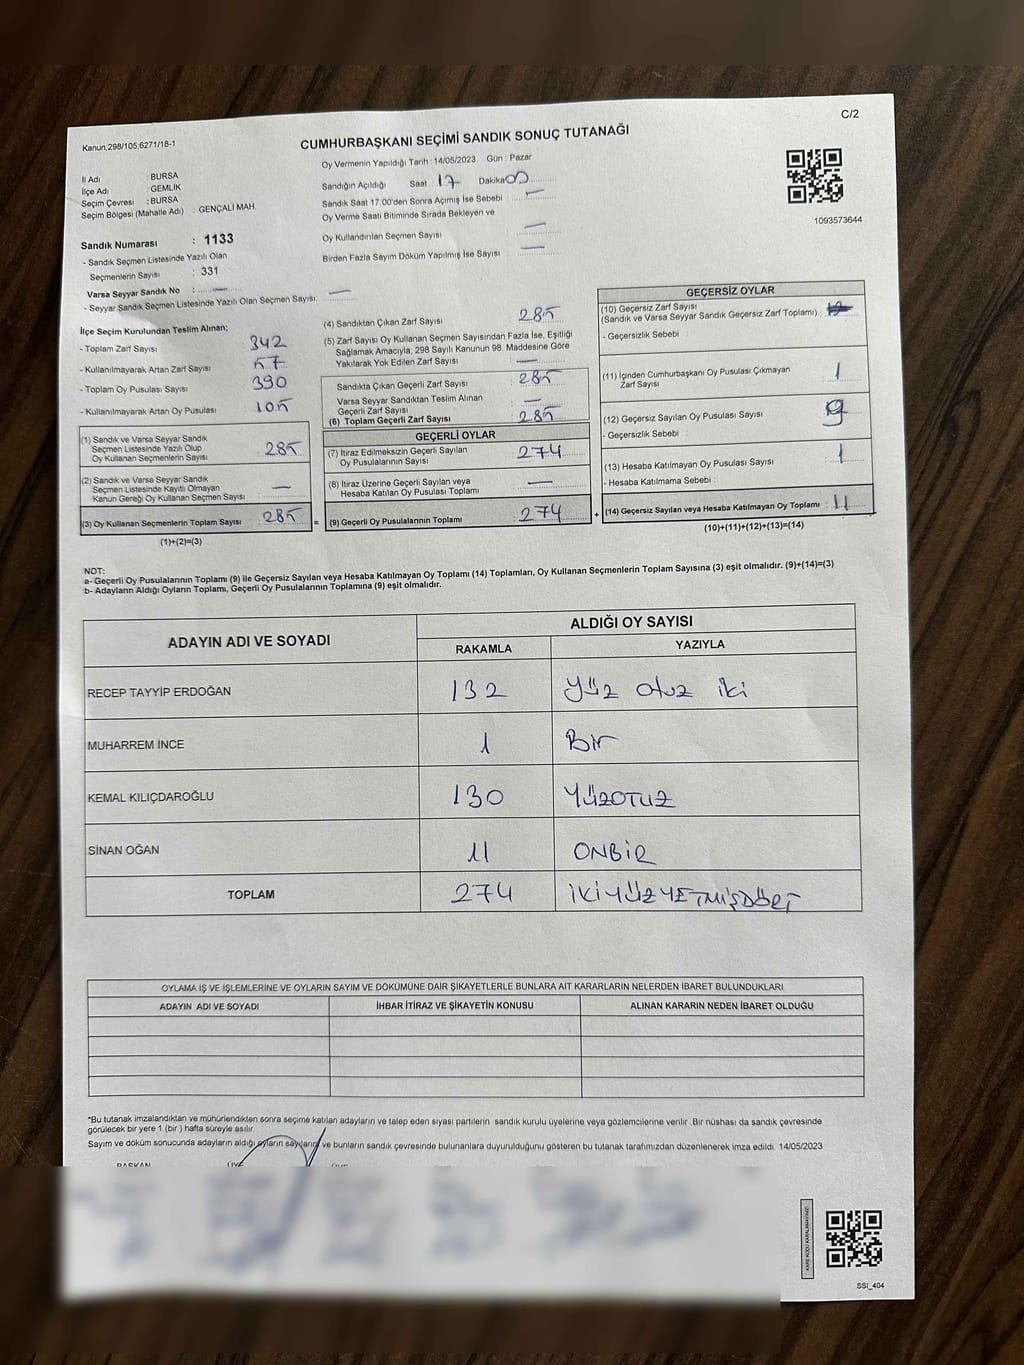 C/2
Kanun;298/105;6271/18-1
CUMHURBAŞKANI SEÇİMİ SANDIK SONUÇ TUTANAĞI
İl Adı : BURSA
İlçe Adı : GEMLİK
Seçim Çevresi : BURSA
Seçim Bölgesi (Mahalle Adı) : GENÇALİ MAH.
Sandık Numarası : 1133
- Sandık Seçmen Listesinde Yazılı Olan
Seçmenlerin Sayısı : 331
Varsa Seyyar Sandık No : —
- Seyyar Sandık Seçmen Listesinde Yazılı Olan Seçmen Sayısı: —
Oy Vermenin Yapıldığı Tarih : 14/05/2023 Gün : Pazar
Sandığın Açıldığı Saat 17 Dakika 00
Sandık Saat 17.00'den Sonra Açımış İse Sebebi : —
Oy Verme Saati Bitiminde Sırada Bekleyen ve
Oy Kullandırılan Seçmen Sayısı : —
Birden Fazla Sayım Döküm Yapılmış İse Sayısı : —
1093573644
İlçe Seçim Kurulundan Teslim Alınan;
- Toplam Zarf Sayısı 342
- Kullanılmayarak Artan Zarf Sayısı 57
- Toplam Oy Pusulası Sayısı 390
- Kullanılmayarak Artan Oy Pusulası 105
(1) Sandık ve Varsa Seyyar Sandık
Seçmen Listesinde Yazılı Olup
Oy Kullanan Seçmenlerin Sayısı 285
(2) Sandık ve Varsa Seyyar Sandık
Seçmen Listesinde Kayıtlı Olmayan
Kanun Gereği Oy Kullanan Seçmen Sayısı —
(3) Oy Kullanan Seçmenlerin Toplam Sayısı 285
(1)+(2)=(3)
=
(4) Sandıktan Çıkan Zarf Sayısı 285
(5) Zarf Sayısı Oy Kullanan Seçmen Sayısından Fazla İse, Eşitliği
Sağlamak Amacıyla, 298 Sayılı Kanunun 98. Maddesine Göre
Yakılarak Yok Edilen Zarf Sayısı —
Sandıkta Çıkan Geçerli Zarf Sayısı 285
Varsa Seyyar Sandıktan Teslim Alınan
Geçerli Zarf Sayısı —
(6) Toplam Geçerli Zarf Sayısı 285
GEÇERLİ OYLAR
(7) İtiraz Edilmeksizin Geçerli Sayılan
Oy Pusulalarının Sayısı 274
(8) İtiraz Üzerine Geçerli Sayılan veya
Hesaba Katılan Oy Pusulası Toplamı —
(9) Geçerli Oy Pusulalarının Toplamı 274
+
GEÇERSİZ OYLAR
(10) Geçersiz Zarf Sayısı
(Sandık ve Varsa Seyyar Sandık Geçersiz Zarf Toplamı) :
- Geçersizlik Sebebi :
(11) İçinden Cumhurbaşkanı Oy Pusulası Çıkmayan
Zarf Sayısı : 1
(12) Geçersiz Sayılan Oy Pusulası Sayısı : 9
- Geçersizlik Sebebi :
(13) Hesaba Katılmayan Oy Pusulası Sayısı : 1
- Hesaba Katılmama Sebebi :
(14) Geçersiz Sayılan veya Hesaba Katılmayan Oy Toplamı : 11
(10)+(11)+(12)+(13)=(14)
NOT:
a- Geçerli Oy Pusulalarının Toplamı (9) ile Geçersiz Sayılan veya Hesaba Katılmayan Oy Toplamı (14) Toplamları, Oy Kullanan Seçmenlerin Toplam Sayısına (3) eşit olmalıdır. (9)+(14)=(3)
b- Adayların Aldığı Oyların Toplamı, Geçerli Oy Pusulalarının Toplamına (9) eşit olmalıdır.
ADAYIN ADI VE SOYADI ALDIĞI OY SAYISI
RAKAMLA YAZIYLA
RECEP TAYYİP ERDOĞAN 132 yüz otuz iki
MUHARREM İNCE 1 Bir
KEMAL KILIÇDAROĞLU 130 YÜZOTUZ
SİNAN OĞAN 11 ONBİR
TOPLAM 274 İKİYÜZYETMİŞDÖRT
OYLAMA İŞ VE İŞLEMLERİNE VE OYLARIN SAYIM VE DÖKÜMÜNE DAİR ŞİKAYETLERLE BUNLARA AİT KARARLARIN NELERDEN İBARET BULUNDUKLARI
ADAYIN ADI VE SOYADI İHBAR İTİRAZ VE ŞİKAYETİN KONUSU ALINAN KARARIN NEDEN İBARET OLDUĞU
*Bu tutanak imzalandıktan ve mühürlendikten sonra seçime katılan adayların ve talep eden siyasi partilerin sandık kurulu üyelerine veya gözlemcilerine verilir. Bir nüshası da sandık çevresinde
görülecek bir yere 1 (bir ) hafta süreyle asılır.
Sayım ve döküm sonucunda adayların aldığı oyların sayılarını ve bunların sandık çevresinde bulunanlara duyurulduğunu gösteren bu tutanak tarafımızdan düzenlenerek imza edildi. 14/05/2023
BAŞKAN ÜYE
SSI_404